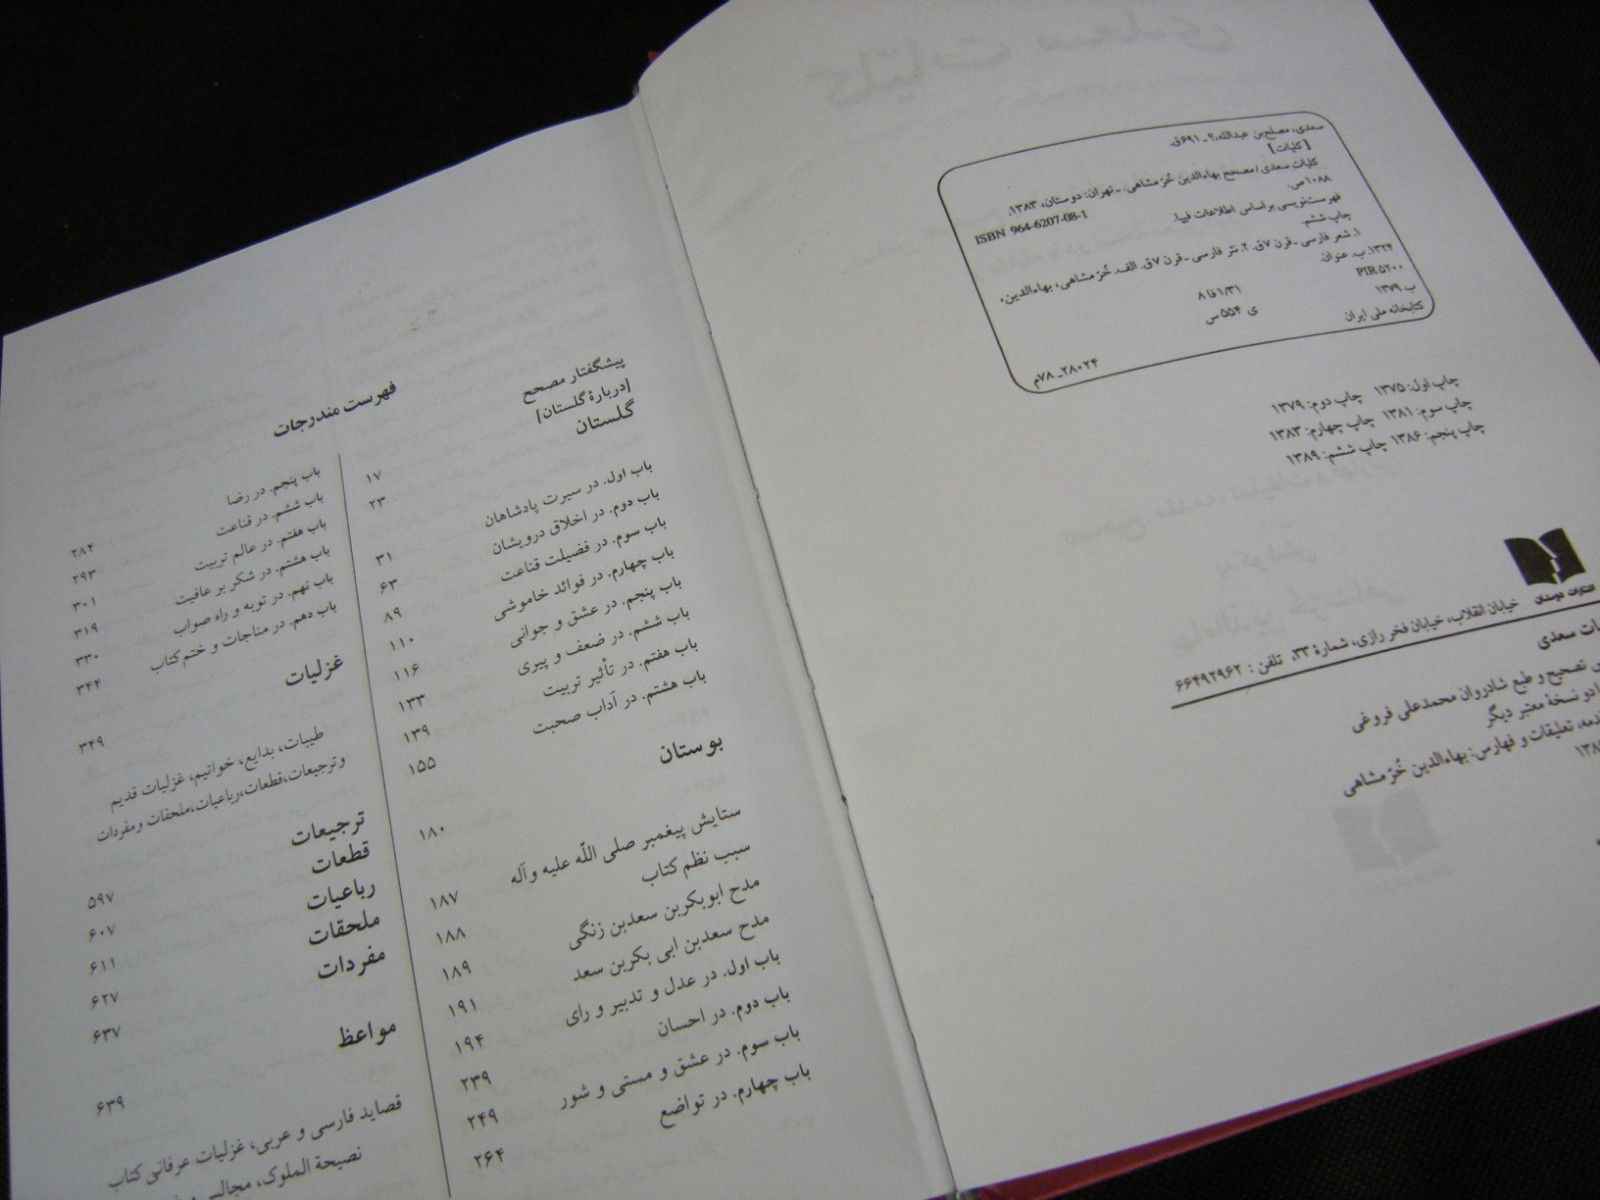 سعدی، مصلح‌بن عبدالله، ؟ ـ ۶۹۱ق.
[کلیات]
کلیات سعدی / مصحح بهاءالدین خُرّمشاهی. ـ تهران: دوستان، ۱۳۸۳.
۱۰۸۸ ص.
ISBN 964-6207-08-1
فهرست‌نویسی براساس اطلاعات فیپا.
چاپ ششم.
۱. شعر فارسی ـ قرن ۷ق. ۲. نثر فارسی ـ قرن ۷ق. الف. خُرّمشاهی، بهاءالدین،
۱۳۲۴. ب. عنوان.
PIR ۵۲۰۰ ۸فا۱/۳۱
ب ۱۳۷۹ ی ۵۵۴ س
کتابخانه ملی ایران
۲۸۰۲۴ـ۷۸م
چاپ اول: ۱۳۷۵ چاپ دوم: ۱۳۷۹
چاپ سوم: ۱۳۸۱ چاپ چهارم: ۱۳۸۳
چاپ پنجم: ۱۳۸۶ چاپ ششم: ۱۳۸۹
انتشارات دوستان
خیابان انقلاب، خیابان فخر رازی، شمارهٔ ۳۳، تلفن: ۶۶۴۹۲۹۶۲
سعدی
تصحیح و طبع شادروان محمدعلی فروغی
دو نسخهٔ معتبر دیگر
تعلیقات و فهارس: بهاءالدین خُرّمشاهی
فهرست مندرجات
پیشگفتار مصحح ۱۷
[دربارهٔ گلستان] ۲۳
گلستان
باب اول. در سیرت پادشاهان ۳۱
باب دوم. در اخلاق درویشان ۶۳
باب سوم. در فضیلت قناعت ۸۹
باب چهارم. در فوائد خاموشی ۱۱۰
باب پنجم. در عشق و جوانی ۱۱۶
باب ششم. در ضعف و پیری ۱۳۳
باب هفتم. در تأثیر تربیت ۱۳۹
باب هشتم. در آداب صحبت ۱۵۵
بوستان ۱۸۰
ستایش پیغمبر صلی اللّه علیه وآله ۱۸۷
سبب نظم کتاب ۱۸۸
مدح ابوبکربن سعدبن زنگی ۱۸۹
مدح سعدبن ابی بکربن سعد ۱۹۱
باب اول. در عدل و تدبیر و رای ۱۹۴
باب دوم. در احسان ۲۳۹
باب سوم. در عشق و مستی و شور ۲۴۹
باب چهارم. در تواضع ۲۶۴
باب پنجم. در رضا ۲۸۲
باب ششم. در قناعت ۲۹۳
باب هفتم. در عالم تربیت ۳۰۱
باب هشتم. در شکر بر عافیت ۳۱۹
باب نهم. در توبه و راه صواب ۳۳۰
باب دهم. در مناجات و ختم کتاب ۳۴۴
غزلیات ۳۴۹
طیبات، بدایع، خواتیم، غزلیات قدیم
و ترجیعات، قطعات، رباعیات، ملحقات و مفردات
ترجیعات ۵۹۷
قطعات ۶۰۷
رباعیات ۶۱۱
ملحقات ۶۲۷
مفردات ۶۳۷
مواعظ ۶۳۹
قصاید فارسی و عربی، غزلیات عرفانی کتاب
نصیحة الملوک، مجالس